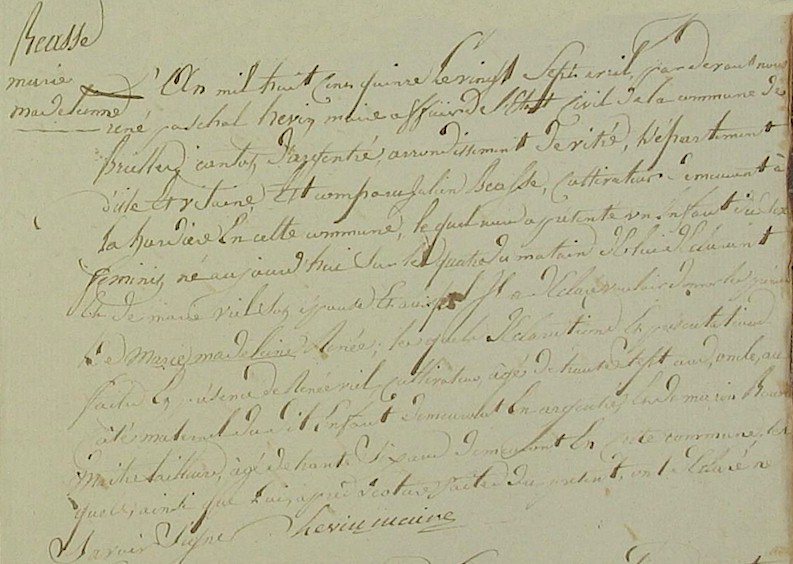 Beasse
marie
madelenne
L'An mil huit cens quinze le vingt Sept avril, pardevant nous
René paschal hevin maire officier de l'Etat civil de la commune de
Brielles, canton d'argentré, arrondissement de vitré, Département
d'ille et vilaine, Est comparu Julien Beasse, cultivateur demeurant à
la hardiere En cette commune, lequel nous a presenté un Enfant du sexe
feminin, né aujourd'hui Sur les quatre du matain de lui Déclarant
Et de marie viel son épouse Et auquel Il a Déclaré vouloir donner les prénoms
De Marie madeleine Renée, les quels Déclarations Et presentation
faitte En présence de René viel, cultivateur, âgé de trante Sept ans, oncle, au
côté maternel du dit Enfant demeurant En argentré, Et de marin
Maitre tailleur, âgé de trante ans demeurant En cette commune, les
quels, ainsi que lui, après lecture faitte du présent, ont déclaré ne
Savoir Signer hevin maire